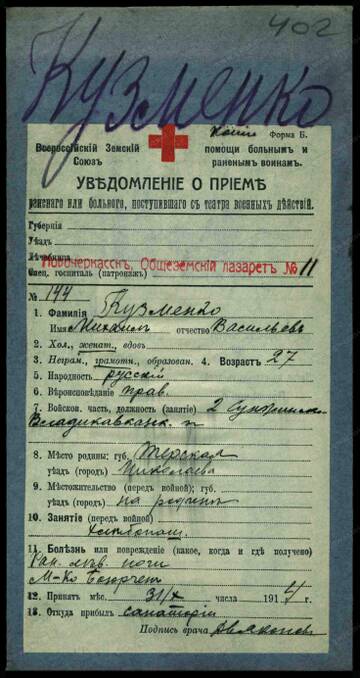 402
Кузменко
Копия Форма Б.
Всероссійскій Земскій
Союзъ
помощи больнымъ и
раненымъ воинамъ.
УВѢДОМЛЕНІЕ О ПРІЕМѢ
раненаго или больного, поступившаго съ театра военныхъ дѣйствій.
Губернія
Уѣздъ
Лѣчебница
Новочеркасскъ, Общеземскій лазаретъ № 11
Спец. госпиталь (патронажъ)
№ 144
1. Фамилія Кузменко
Имя Михаилъ отчество Васильевъ
2. Хол., женат., вдовъ
3. Неграм., грамотн., образован. 4. Возрастъ 27
5. Народность русскій
6. Вѣроисповѣданіе прав.
7. Войсков. часть, должность (занятіе) 2
Владикавказ. п
8. Мѣсто родины: губ. Терская
уѣздъ (городъ) Николаева
9. Мѣстожительство (передъ войной); губ.
уѣздъ (городъ) на родинѣ
10. Занятіе (передъ войной)
хлѣбопаш.
11. Болѣзнь или поврежденіе (какое, когда и гдѣ получено)
Ран. лѣв. ноги
М-ко
12. Принятъ мѣс. 31/X числа 1914 г.
13. Откуда прибылъ санаторіи
Подпись врача